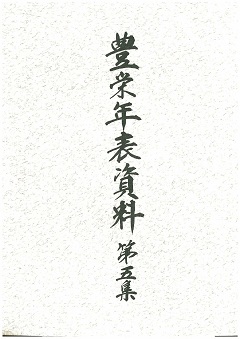 豊栄年表資料 第五集